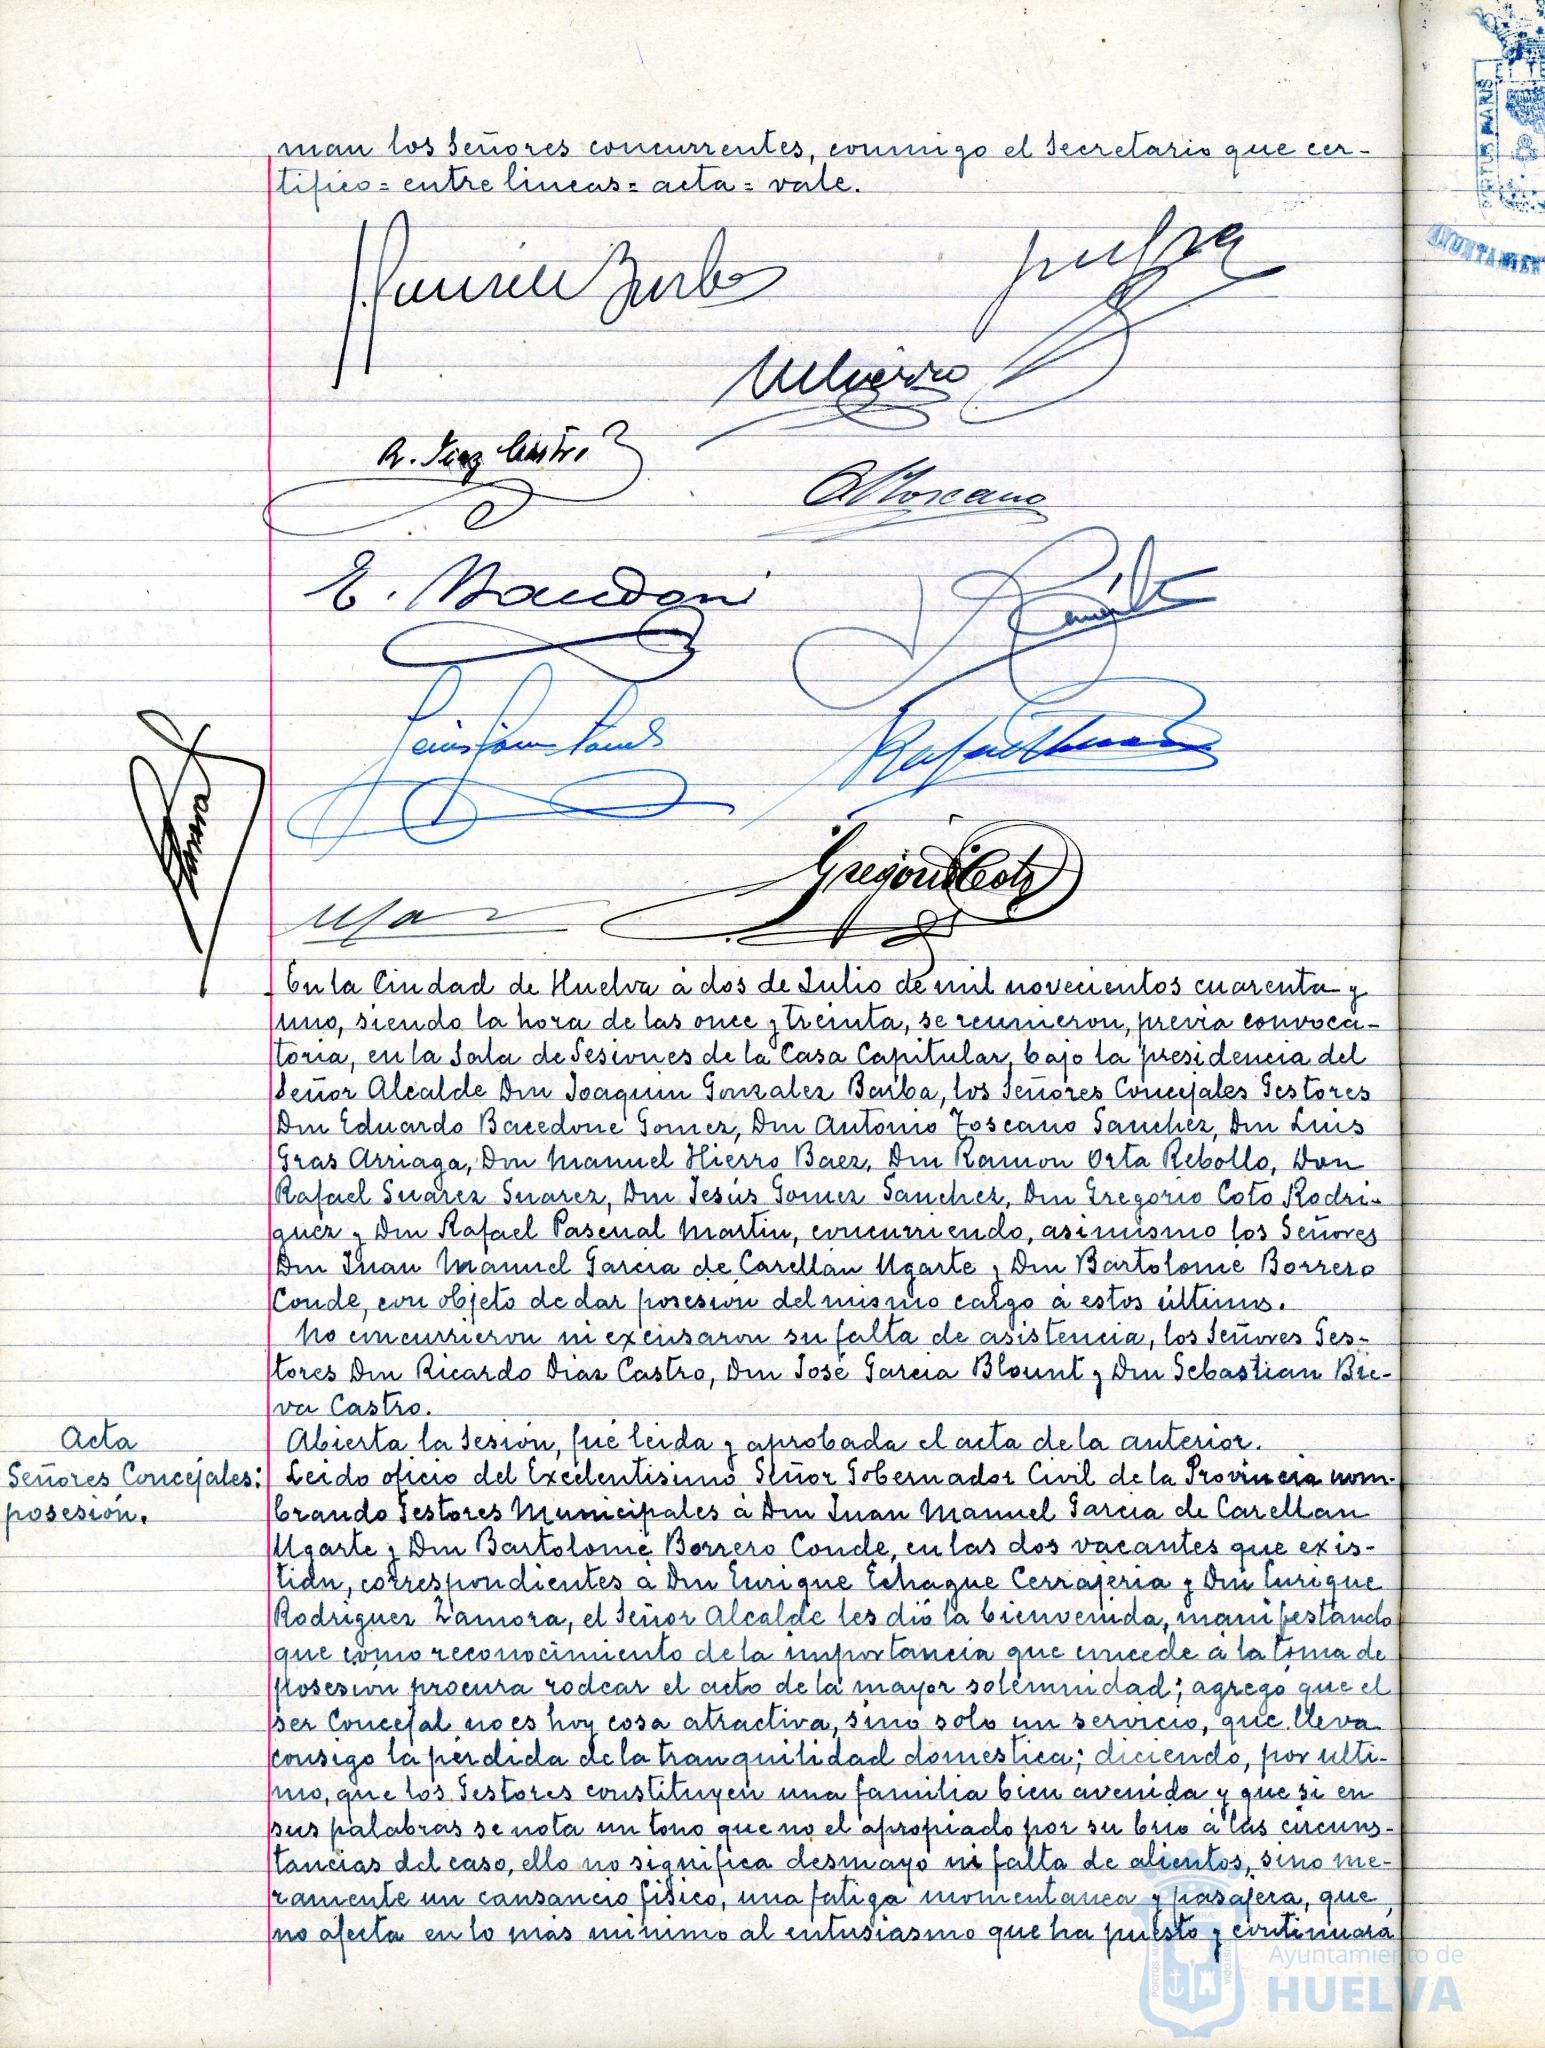 man los Señores concurrentes, conmigo el Secretario que cer-
tifico = entre lineas = acta = vale.
R. Diaz Castro
A Toscano
Gregorio Coto
En la Ciudad de Huelva á dos de Julio de mil novecientos cuarenta y
uno, siendo la hora de las once y treinta, se reunieron, previa convoca-
toria, en la Sala de Sesiones de la Casa Capitular, bajo la presidencia del
Señor Alcalde Don Joaquin Gonzalez Barba, los Señores Concejales Gestores
Don Eduardo Bacedone Gomez, Don Antonio Toscano Sanchez, Don Luis
Gras Arriaga, Don Manuel Hierro Baez, Don Ramon Orta Rebollo, Don
Rafael Suarez Suarez, Don Jesús Gomez Sanchez, Don Gregorio Coto Rodri-
guez y Don Rafael Pascual Martin, concurriendo, asimismo los Señores
Don Juan Manuel Garcia de Carellán Ugarte y Don Bartolome Borrero
Conde, con objeto de dar posesion del mismo cargo á estos últimos.
No concurrieron ni excusaron su falta de asistencia, los Señores Ges-
tores Don Ricardo Diaz Castro, Don José Garcia Blount y Don Sebastian Bie-
va Castro.
Acta
Abierta la Sesión, fué leida y aprobada el acta de la anterior.
Señores Concejales:
posesión.
Leido oficio del Excelentisimo Señor Gobernador Civil de la Provincia nom-
brando Gestores Municipales á Don Juan Manuel Garcia de Carellan
Ugarte y Don Bartolomé Borrero Conde, en las dos vacantes que exis-
tian, correspondientes á Don Enrique Echague Cerrajeria y Don Enrique
Rodriguez Zamora, el Señor Alcalde les dió la bienvenida, manifestando
que como reconocimiento de la importancia que concede á la toma de
posesión procura rodear el acto de la mayor solemnidad; agregó que el
ser Concejal no es hoy cosa atractiva, sino solo un servicio, que lleva
consigo la pérdida de la tranquilidad domestica; diciendo, por ulti-
mo, que los Gestores constituyen una familia bien avenida y que si en
sus palabras se nota un tono que no el apropiado por su brio á las circuns-
tancias del caso, ello no significa desmayo ni falta de alientos, sino me-
ramente un cansancio fisico, una fatiga momentanea y pasajera, que
no afecta en lo más minimo al entusiasmo que ha puesto y continuará
Ayuntamiento de
HUELVA